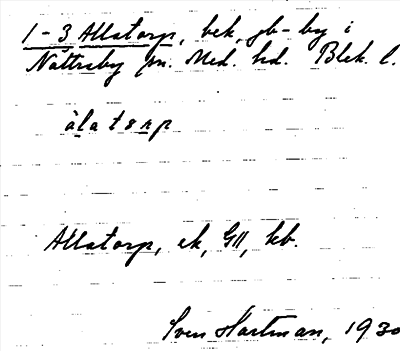 1-3 Allatorp, bek. jb-by i
Nättraby sn. Med. hd. Blek. l.
àlatorp
Allatorp, ek, GII, kb.
Sven Hartman, 1930